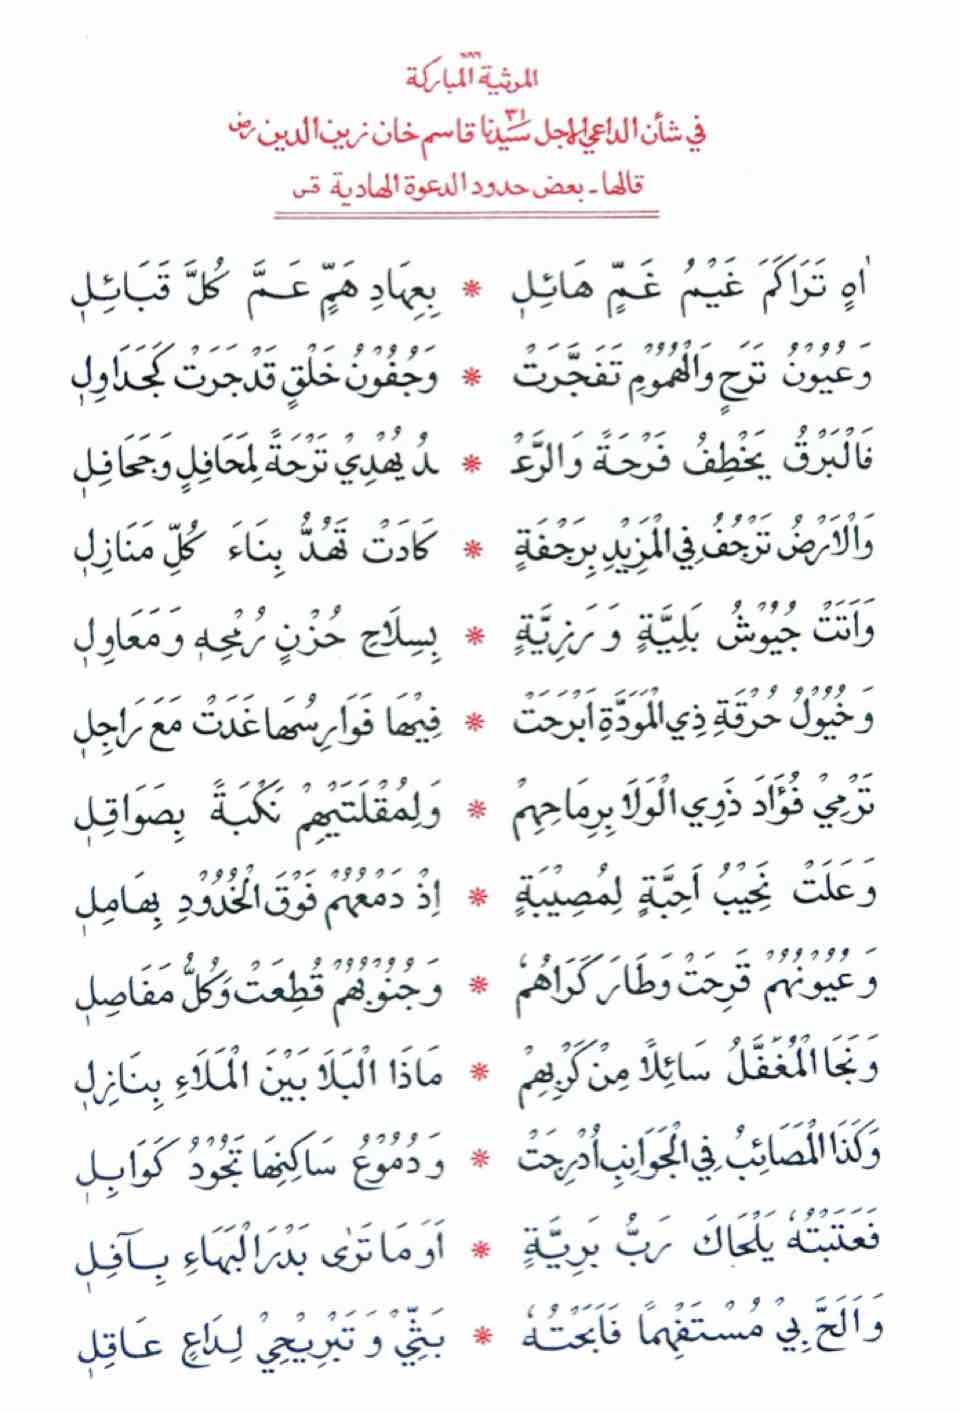 ٧٨٦
المرثية المباركة
في شأن الداعي الاجل سيدنا ٣١ قاسم خان زين الدين رض
قالها - بعض حدود الدعوة الهادية قس
اٰهٍ تَرَاكَمَ غَيْمُ غَمٍّ هَائِلِ * بِعِهَادِ هَمٍّ عَمَّ كُلَّ قَبَائِلِ
وَعُيُوْنُ تَرَحٍ وَالْهُمُوْمِ تَفَجَّرَتْ * وَجُفُوْنُ خَلْقٍ قَدْ جَرَتْ كَجَدَاوِلِ
فَالْبَرْقُ يَخْطِفُ فَرْحَةً وَالرَّعْـ * ـدُ يُهْدِيْ تَرْحَةً لِمَحَافِلٍ وَجَحَافِلِ
وَالْاَرْضُ تَرْجُفُ فِي الْمَزِيْدِ بِرَجْفَةٍ * كَادَتْ تَهُدُّ بِنَاءَ كُلِّ مَنَازِلِ
وَاَتَتْ جُيُوْشُ بَلِيَّةٍ وَرَزِيَّةٍ * بِسِلَاحِ حُزْنٍ رُمْحِهِ وَمَعَاوِلِ
وَخُيُوْلُ حُرْقَةِ ذِي الْمَوَدَّةِ اَبْرَحَتْ * فِيْهَا فَوَارِسُهَا غَدَتْ مَعَ رَاجِلِ
تَرْمِيْ فُؤَادَ ذَوِي الْوَلَا بِرِمَاحِهِمْ * وَلِمُقْلَتَيْهِمْ نَكْبَةً بِصَوَاقِلِ
وَعَلَتْ نَحِيْبُ اَحِبَّةٍ لِمُصِيْبَةٍ * اِذْ دَمْعُهُمْ فَوْقَ الْخُدُوْدِ بِهَامِلِ
وَعُيُوْنُهُمْ قَرِحَتْ وَطَارَ كَرَاهُمُ * وَجُنُوْبُهُمْ قُطِعَتْ وَكُلُّ مَفَاصِلِ
وَنَجَا الْمُغَفَّلُ سَائِلًا مِنْ كَرْبِهِمْ * مَاذَا الْبَلَا بَيْنَ الْمَلَاءِ بِنَازِلِ
وَكَذَا الْمَصَائِبُ فِي الْجَوَانِبِ اُدْرِجَتْ * وَدُمُوْعُ سَاكِنِهَا تَجُوْدُ كَوَابِلِ
فَعَتَبْتُهُ يَلْحَاكَ رَبُّ بَرِيَّةٍ * اَوَمَا تَرٰى بَدْرَ الْبَهَاءِ بِآفِلِ
وَاَلَحَّ بِيْ مُسْتَفْهِمًا فَاَبَحْتُهُ * بَثِّيْ وَتَبْرِيْحِيْ لِدَاعٍ عَاقِلِ